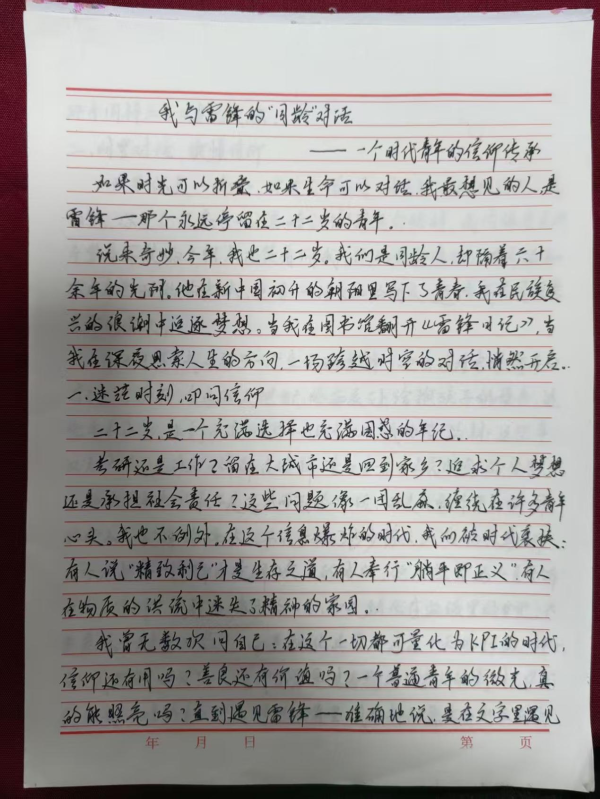 我与雷锋的“同龄”对话
——一个时代青年的信仰传承
如果时光可以折叠,如果生命可以对话,我最想见的人是
雷锋——那个永远停留在二十二岁的青年。
说来奇妙,今年,我也二十二岁。我们是同龄人,却隔着六十
余年的光阴。他在新中国初升的朝阳里写下了青春,我在民族复
兴的浪潮中追逐梦想。当我在图书馆翻开《雷锋日记》,当
我在深夜思索人生的方向,一场跨越时空的对话,悄然开启。
一、迷茫时刻,叩问信仰
二十二岁,是一个充满选择也充满困惑的年纪。
考研还是工作?留在大城市还是回到家乡?追求个人梦想
还是承担社会责任?这些问题像一团乱麻,缠绕在许多青年
心头。我也不例外。在这个信息爆炸的时代,我们被时代裹挟:
有人说“精致利己”才是生存之道,有人奉行“躺平即正义”,有人
在物质的洪流中迷失了精神的家园。
我曾无数次问自己:在这个一切都可量化为KPI的时代,
信仰还有用吗?善良还有价值吗?一个普通青年的微光,真
的能照亮吗?直到遇见雷锋——准确地说,是在文字里遇见
年 月 日
第 页